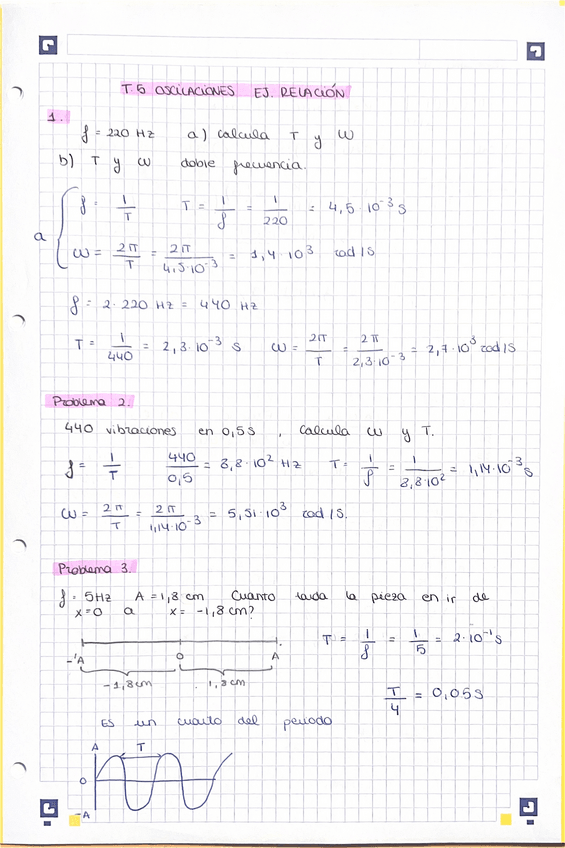 T.5 OSCILACIONES EJ. RELACIÓN
1.
f = 220 Hz a) calcula T y ω
b) T y ω doble frecuencia.
a
f = 1/T T = 1/f = 1/220 = 4,5·10⁻³ s
ω = 2π/T = 2π/4,5·10⁻³ = 1,4·10³ rad/s
f = 2·220 Hz = 440 Hz
T = 1/440 = 2,3·10⁻³ s ω = 2π/T = 2π/2,3·10⁻³ = 2,7·10³ rad/s
Problema 2.
440 vibraciones en 0,5s, calcula ω y T.
f = 1/T 440/0,5 = 8,8·10² Hz T = 1/f = 1/8,8·10² = 1,14·10⁻³ s
ω = 2π/T = 2π/1,14·10⁻³ = 5,51·10³ rad/s.
Problema 3.
f = 5Hz A = 1,8 cm Cuanto tarda la pieza en ir de
x=0 a x= -1,8cm?
T = 1/f = 1/5 = 2·10⁻¹ s
-A 0 A
-1,8cm 1,8cm
T/4 = 0,05s
Es un cuarto del periodo
A T
0
-A